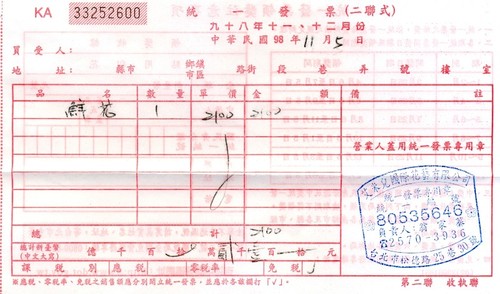 KA 33252600
統一發票(二聯式)
九十八年十一、十二月份
中華民國98年11月5日
買受人:
地址: 縣市 鄉鎮市區 路街 段 巷 弄 號 樓 室
品名 數量 單價 金額 備註
鮮花 1 2100 2100
營業人蓋用統一發票專用章
國際花藝有限公司
統一發票專用章
80535646
負責人:翁
☎2570-3936
台北市松德路25巷30號
總計 2100
總計新臺幣
(中文大寫) 億 千 百 拾 萬 貳仟 壹佰 拾 元
課稅別 應稅 零稅率 免稅 ✓
※應稅、零稅率、免稅之銷售額應分別開立統一發票,並應於各該欄打「✓」。
第二聯 收執聯